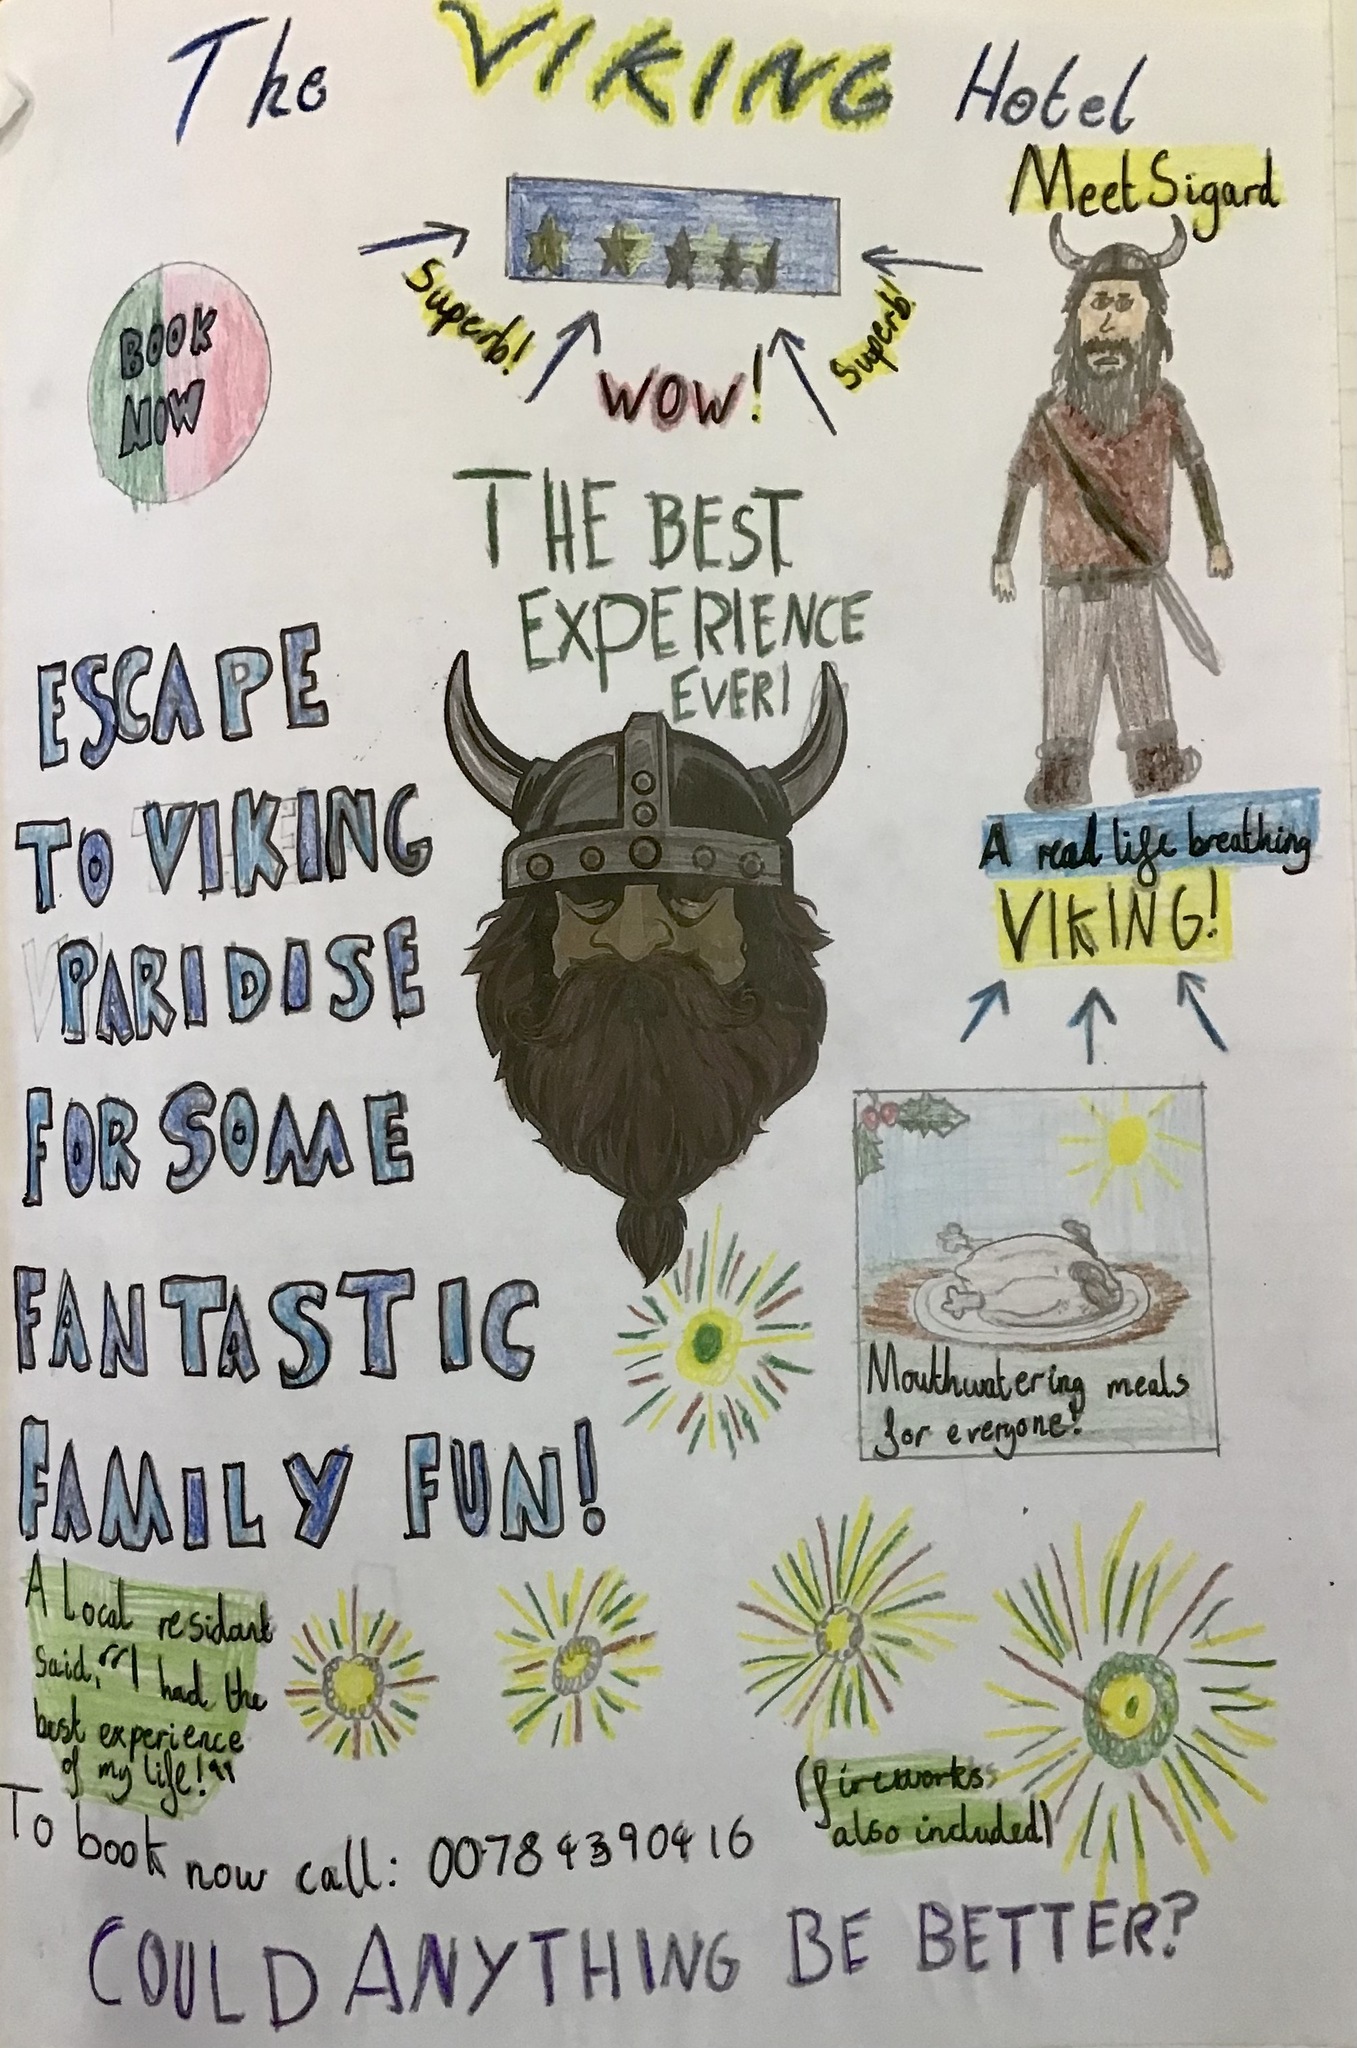 The VIKING Hotel
Meet Sigard
Superb!
Superb!
WOW!
BOOK
NOW
THE BEST
EXPERIENCE
EVER!
ESCAPE
TO VIKING
PARIDISE
FOR SOME
FANTASTIC
FAMILY FUN!
A real life breathing
VIKING!
Mouthwatering meals
for everyone!
A Local residant
said, "I had the
best experience
of my life!"
(fireworks
also included)
To book now call: 00784390416
COULD ANYTHING BE BETTER?